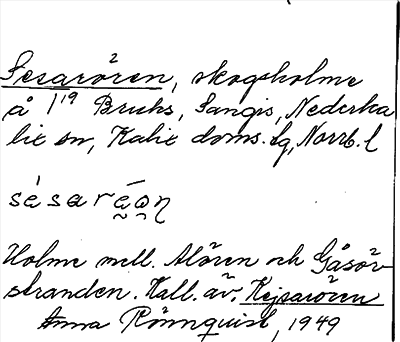 Sesarören, skogsholme
å 1¹⁹ Bruks, Sangis, Nederka
lix sn, Kalix doms. lg, Norrb. l
Holme mell. Alören och Gåsör
stranden. Kall. äv. Kejsarören
Anna Rönnquist, 1949